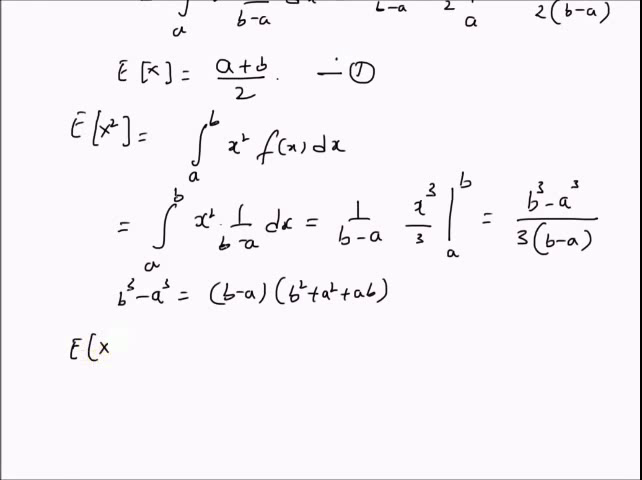 a b-a b-a 2 a 2(b-a)
E[x] = a+b/2 . — ①
E[x²] = ∫_a^b x² f(x) dx
= ∫_a^b x² · 1/b-a dx = 1/b-a x³/3 |_a^b = b³-a³/3(b-a)
b³-a³ = (b-a)(b²+a²+ab)
E[x